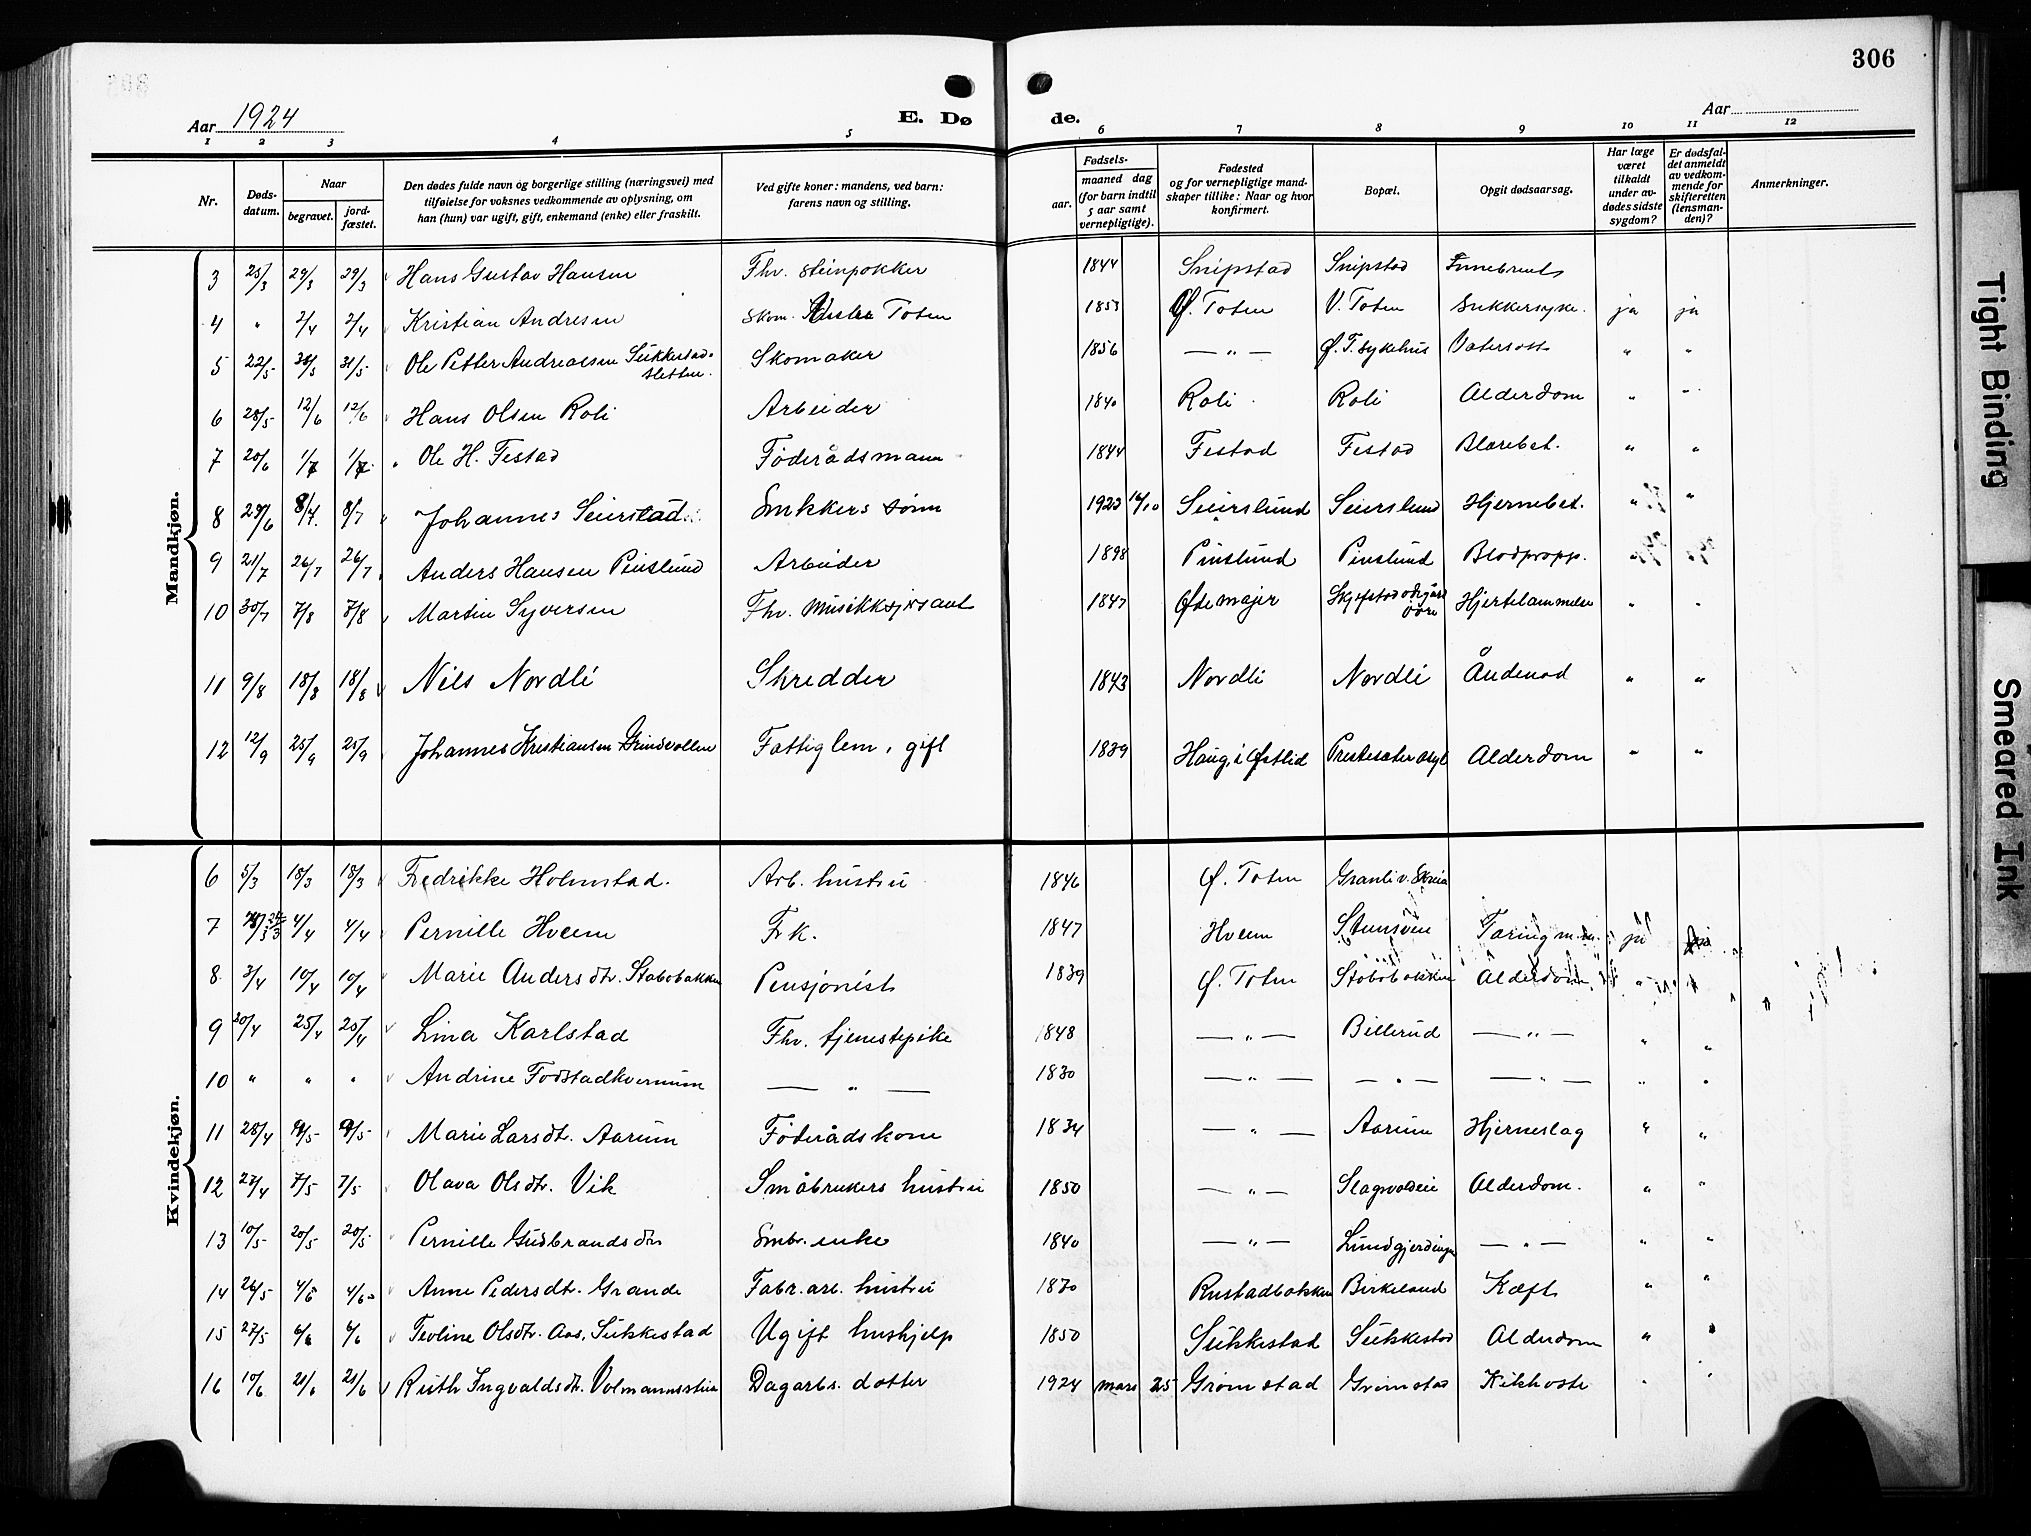 306
Aar 1924
E. Dø de.
Aar
1 2 3 4 5 6 7 8 9 10 11 12
Nr.
Døds-datum.
Naar
begravet.
jord-fæstet.
Den dødes fulde navn og borgerlige stilling (næringsvei) med tilføielse for voksnes vedkommende av oplysning, om han (hun) var ugift, gift, enkemand (enke) eller fraskilt.
Ved gifte koner: mandens, ved barn: farens navn og stilling.
Fødsels-
aar.
maaned dag (for barn indtil 5 aar samt vernepligtige).
Fødested og for vernepligtige mandskaper tillike: Naar og hvor konfirmert.
Bopæl.
Opgit dødsaarsag.
Har læge været tilkaldt under avdødes sidste sygdom?
Er dødsfaldet anmeldt av vedkommende for skifteretten (lensmanden)?
Anmerkninger.
Mandkjøn.
3 25/3 29/3 29/3 Hans Gustav Hansen Fhv. steinpokker 1844 Snipstad Snipstad
4 " 2/4 2/4 Kristian Andresen skom. Toten 1853 Ø. Toten V. Toten Sukkersyke. ja ja
5 22/5 31/5 31/5 Ole Petter Andreassen Sukkestad-sletten. Skomaker 1856 — " — Ø. T. sykehus Vatersott " "
6 28/5 12/6 12/6 Hans Olsen Roli Arbeider 1840 Roli Roli Alderdom " "
7 20/6 1/7 1/7 Ole H. Festad Føderådsmann 1844 Festad Festad Blærebet. " "
8 29/6 8/7 8/7 Johannes Seierstad Smkkers sønn 1922 16/10 Seierslund Seierslund Hjernebet. " "
9 21/7 26/7 26/7 Anders Hansen Pinslund Arbeider 1898 Pinslund Pinslund Blodpropp. " "
10 30/7 7/8 7/8 Martin Syversen Fhv. musikksjersant 1847 Hjertelammelse " "
11 9/8 18/8 18/8 Nils Nordli Skredder 1843 Nordli Nordli Åndenød " "
12 12/9 25/9 25/9 Johannes Kristiansen Grindvollen Fattiglem, gift 1839 Haug, i Østlid Prestesæter asyl Alderdom " "
Kvindekjøn.
6 5/3 18/3 18/3 Fredrikke Holmstad. Arb. hustru 1846 Ø. Toten Granli v. Skreia
7 24/3 4/4 4/4 Pernille Hveem Frk. 1847 Hveem Stensveen Tæring ja
8 3/4 10/4 10/4 Marie Andersdtr. Stabobakken Pensjonist 1839 Ø. Toten Støbobakken Alderdom " "
9 20/4 25/4 25/4 Lina Karlstad Fhv. tjenestepike 1848 — " — Billerud — " — " "
10 " " " Andrine Fodstadkvernum — " — 1830 — " — — " — — " — " "
11 28/4 9/5 9/5 Marie Larsdtr. Aarum Føderådskone 1834 — " — Aarum Hjerneslag " "
12 27/4 7/5 7/5 Olava Olsdtr. Vik Småbrukers hustru 1850 — " — Slagsvoldeie Alderdom. " "
13 10/5 20/5 20/5 Pernille Gudbrandsdtr Smbr. enke 1840 — " — Lundgjerdingen — " — " "
14 26/5 4/6 4/6 Anne Pedersdtr. Grande Fabr. arb. hustru 1870 Rustadbakken Birkeland Kræft " "
15 27/5 6/6 6/6 Teoline Olsdtr. Aas, Sukkestad Ugift hushjelp 1850 Sukkestad Sukkestad Alderdom " "
16 10/6 21/6 21/6 Ruth Ingvaldsdtr. Volmannsstuen Dagarbs. datter 1924 mars 25 Grimstad Grimstad Kikhoste " "
Tight Binding
Smeared Ink